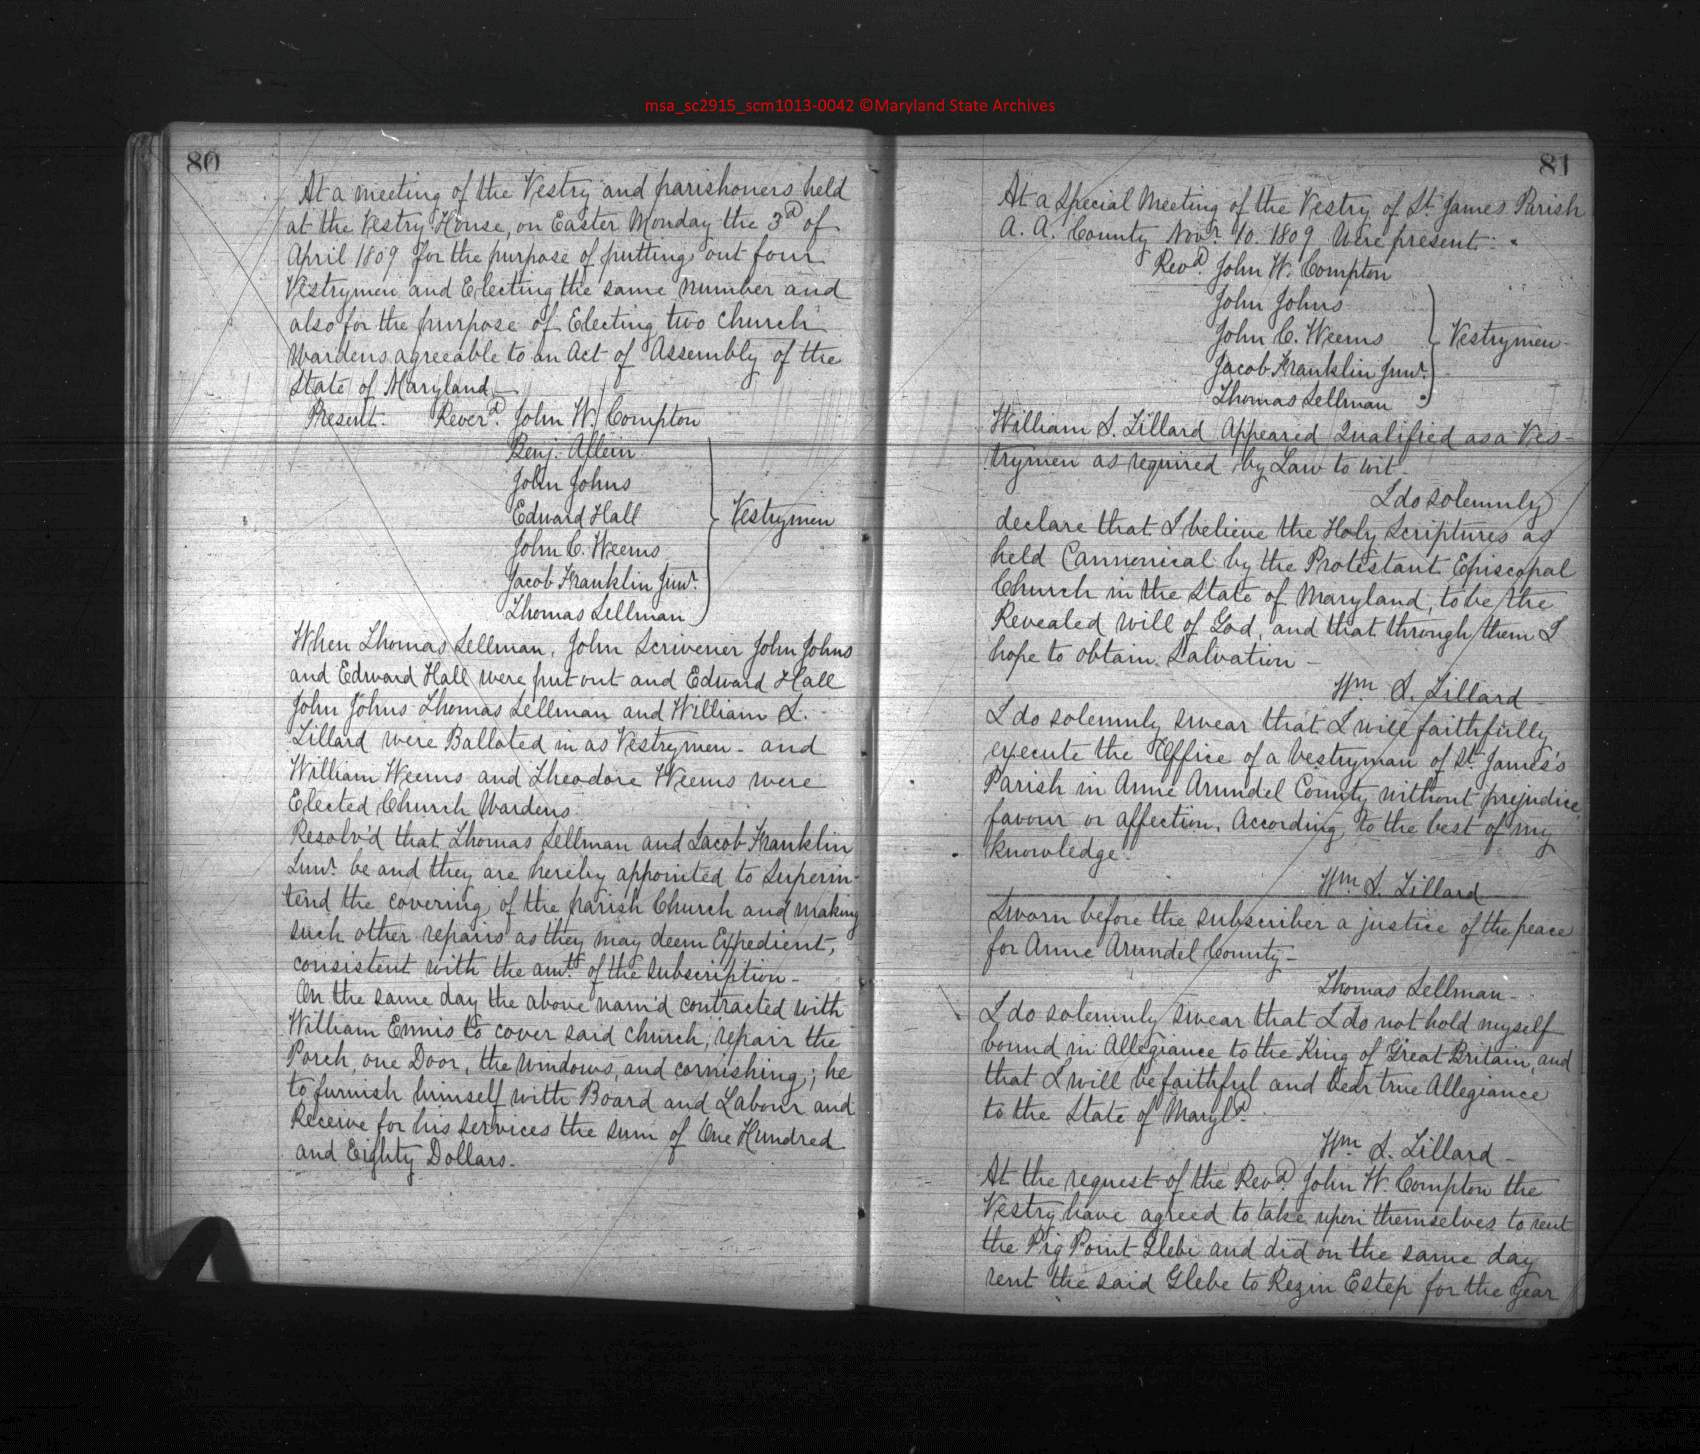 msa_sc2915_scm1013-0042 ©Maryland State Archives
80
At a meeting of the Vestry and parishoners held
at the Vestry House, on Easter Monday the 3d of
April 1809 for the purpose of putting out four
Vestrymen and Electing the same number and
also for the purpose of Electing two church
Wardens agreeable to an Act of Assembly of the
State of Maryland
Present. Reverd. John W. Compton
Benj. Allein
John Johns
Edward Hall
Vestrymen
John C. Weems
Jacob Franklin Junr.
Thomas Sellman
When Thomas Sellman, John Scrivener John Johns
and Edward Hall were put out and Edward Hall
John Johns Thomas Sellman and William S.
Lillard were Balloted in as Vestrymen - and
William Weems and Theodore Weems were
Elected Church Wardens.
Resolv'd that Thomas Sellman and Jacob Franklin
Junr. be and they are hereby appointed to Superin-
tend the covering of the parish Church and making
such other repairs as they may deem Expedient,
consistent with the amt. of the subscription -
On the same day the above nam'd contracted with
William Ennis to cover said church, repair the
Porch, one Door, the windows, and cornishing; he
to furnish himself with Board and Labour and
Receive for his services the sum of One Hundred
and Eighty Dollars.
81
At a Special Meeting of the Vestry of St. James Parish
A. A. County Novr. 10. 1809 Were present:
Revd. John W. Compton
John Johns
John C. Weems
Vestrymen
Jacob Franklin Junr.
Thomas Sellman
William S. Lillard Appeared Qualified as a Ves-
trymen as required by Law to wit -
I do solemnly
declare that I believe the Holy Scriptures as
held Cannonical by the Protestant Episcopal
Church in the State of Maryland, to be the
Revealed will of God, and that through them I
hope to obtain Salvation -
Wm S. Lillard
I do solemnly swear that I will faithfully
execute the Office of a Vestryman of St. James's
Parish in Anne Arundel County without prejudice,
favour or affection, According to the best of my
knowledge.
Wm S. Lillard
Sworn before the subscriber a justice of the peace
for Anne Arundel County -
Thomas Sellman -
I do solemnly swear that I do not hold myself
bound in Allegiance to the King of Great Britain, and
that I will be faithful and bear true Allegiance
to the State of Maryld.
Wm S. Lillard -
At the request of the Revd. John W. Compton the
Vestry have agreed to take upon themselves to rent
the Pig Point Glebe and did on the same day
rent the said Glebe to Rezin Estep for the Year